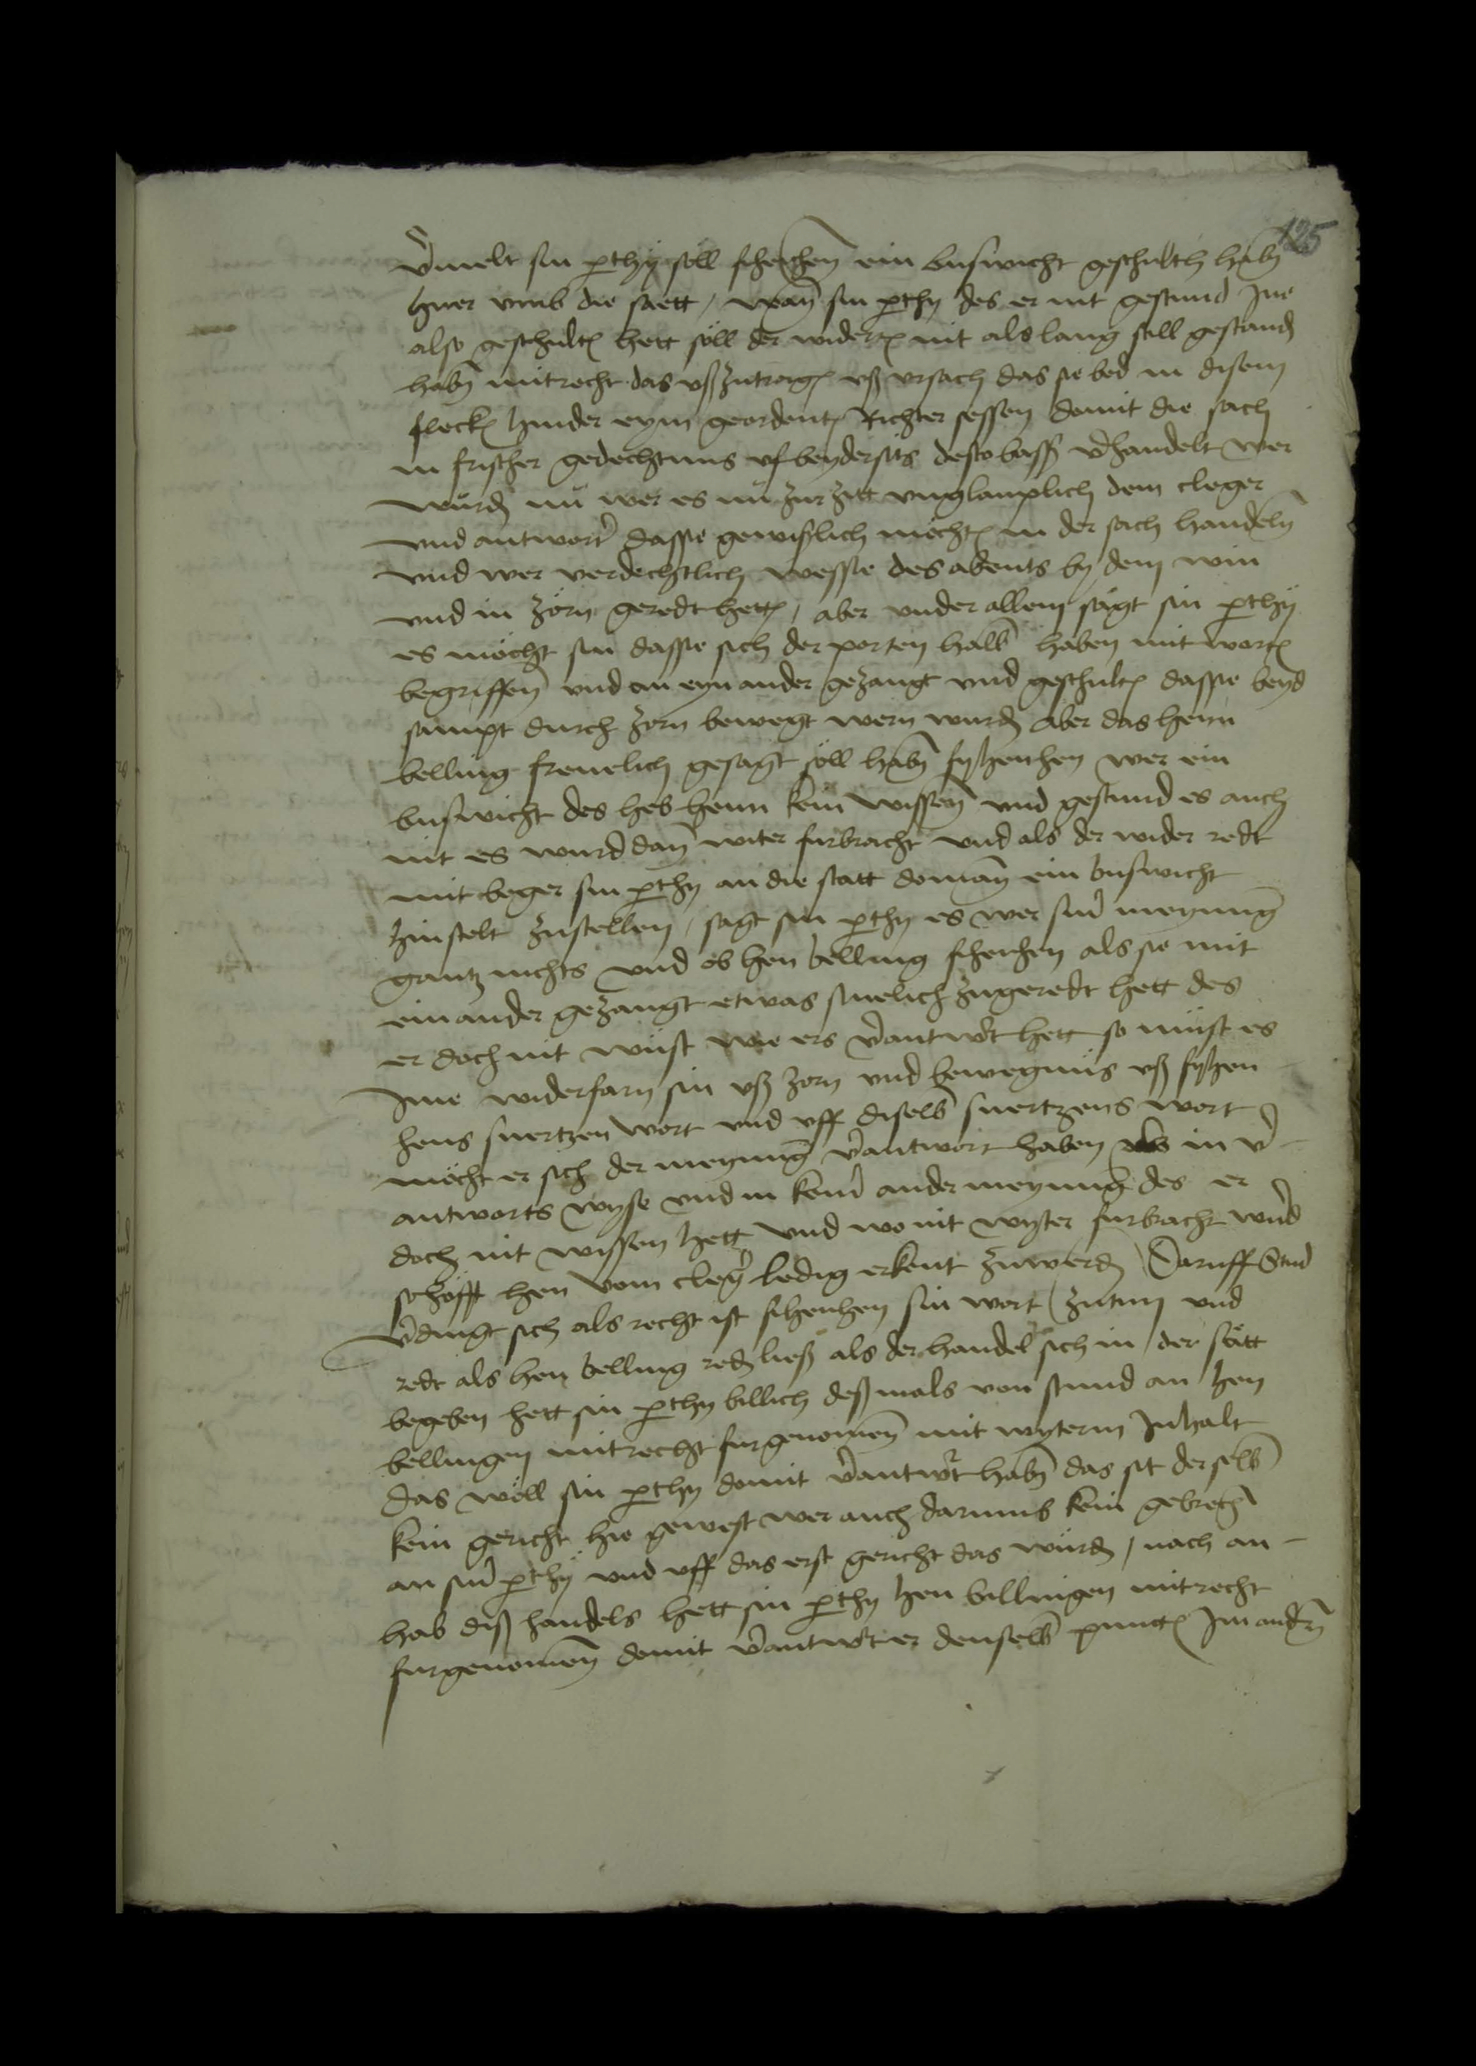 125
v̄melt sin p̱thÿ söll schenchen ein buswicht geschulth̄ habn̄
huer vmb die statt / wan̄ sin p̱thy des er nit gestund Ine
also gescholtē hett söll der widertē nit als lang still gestandē
habn̄ mitrecht das vßzutragē vß vrsach das sie bed in disem
fleckē hinder eym geordentē Richter sessen domit die sach
in frischer gedechtnus vf beydersits desto bass v̄handelt wer
wurdē nu wer es nu zur zitt vnglauplich dem cleger
vnd antwort̄ dassie gewislich mochtē in der sach handeln̄
vnd wer verdechtlich wessie des abents by dem win
vnd in zörn geredt hettē / aber vnder allem sagt sin p̱thÿ
es möcht sin dassie sich der porten halb̄ haben mit wortē
begriffen̄ vnd an eynander gezangt vnd geschultē dassie beyd
sampt durch zorn bewegt wern wurdē aber das henn
belling freuelich gesagt söll habn̄ syhenchen wer ein
buswicht des heb henn kein wissen̄ vnd gestund es auch
nit es wurd dan̄ witer furbracht vnd als der wider redt
mit beger sin p̱thy an die statt doman̄ ein buswicht
hinstelt zustellen / sagt sin p̱thy es wer sin̄ meynung
gantz nichts vnd ob hen belling schenchen als sie mit
einander gezangt etwas smelich zugeredt hett des
er doch nit wust wie ers v̄antw̄t hett so müst es
Ime widerfarn sin vß zorn vnd bewegnüs vß syhen
hens swertzen wort vnd vff diselb̄ swertzens wort
möcht er sich der meynung v̄antwort haben in v̄
antworts wyse vnd in kein̄ ander meynung des er
doch nit wissen hett vnd wo nit wyter furbracht wūd
so hofft hen vom cleḡ ledig erkent zuwerdē Daruff
v̄dingt sich als recht ist schenhen sin wort zutun vnd
redt als hen belling redē ließ als der handel sich in der statt
begeben hett sin p̱thy billich deßmals von stund an hen
bellingen mitrecht furgenomen̄ mit wyterm Inhalt
das wöll sin p̱thy domit v̄antw̄t habn̄ das sit derselb̄
kein gericht hie gewest wer auch darumb kein gebrech̄
an sin̄ p̱thÿ vnd vff das erst gericht das wurdē / nach an
hab diß handels hett sin p̱thy hen billingen mitrecht
furgenomen̄ domit v̄antw̄t er denselb̄ punctē Im andrn̄